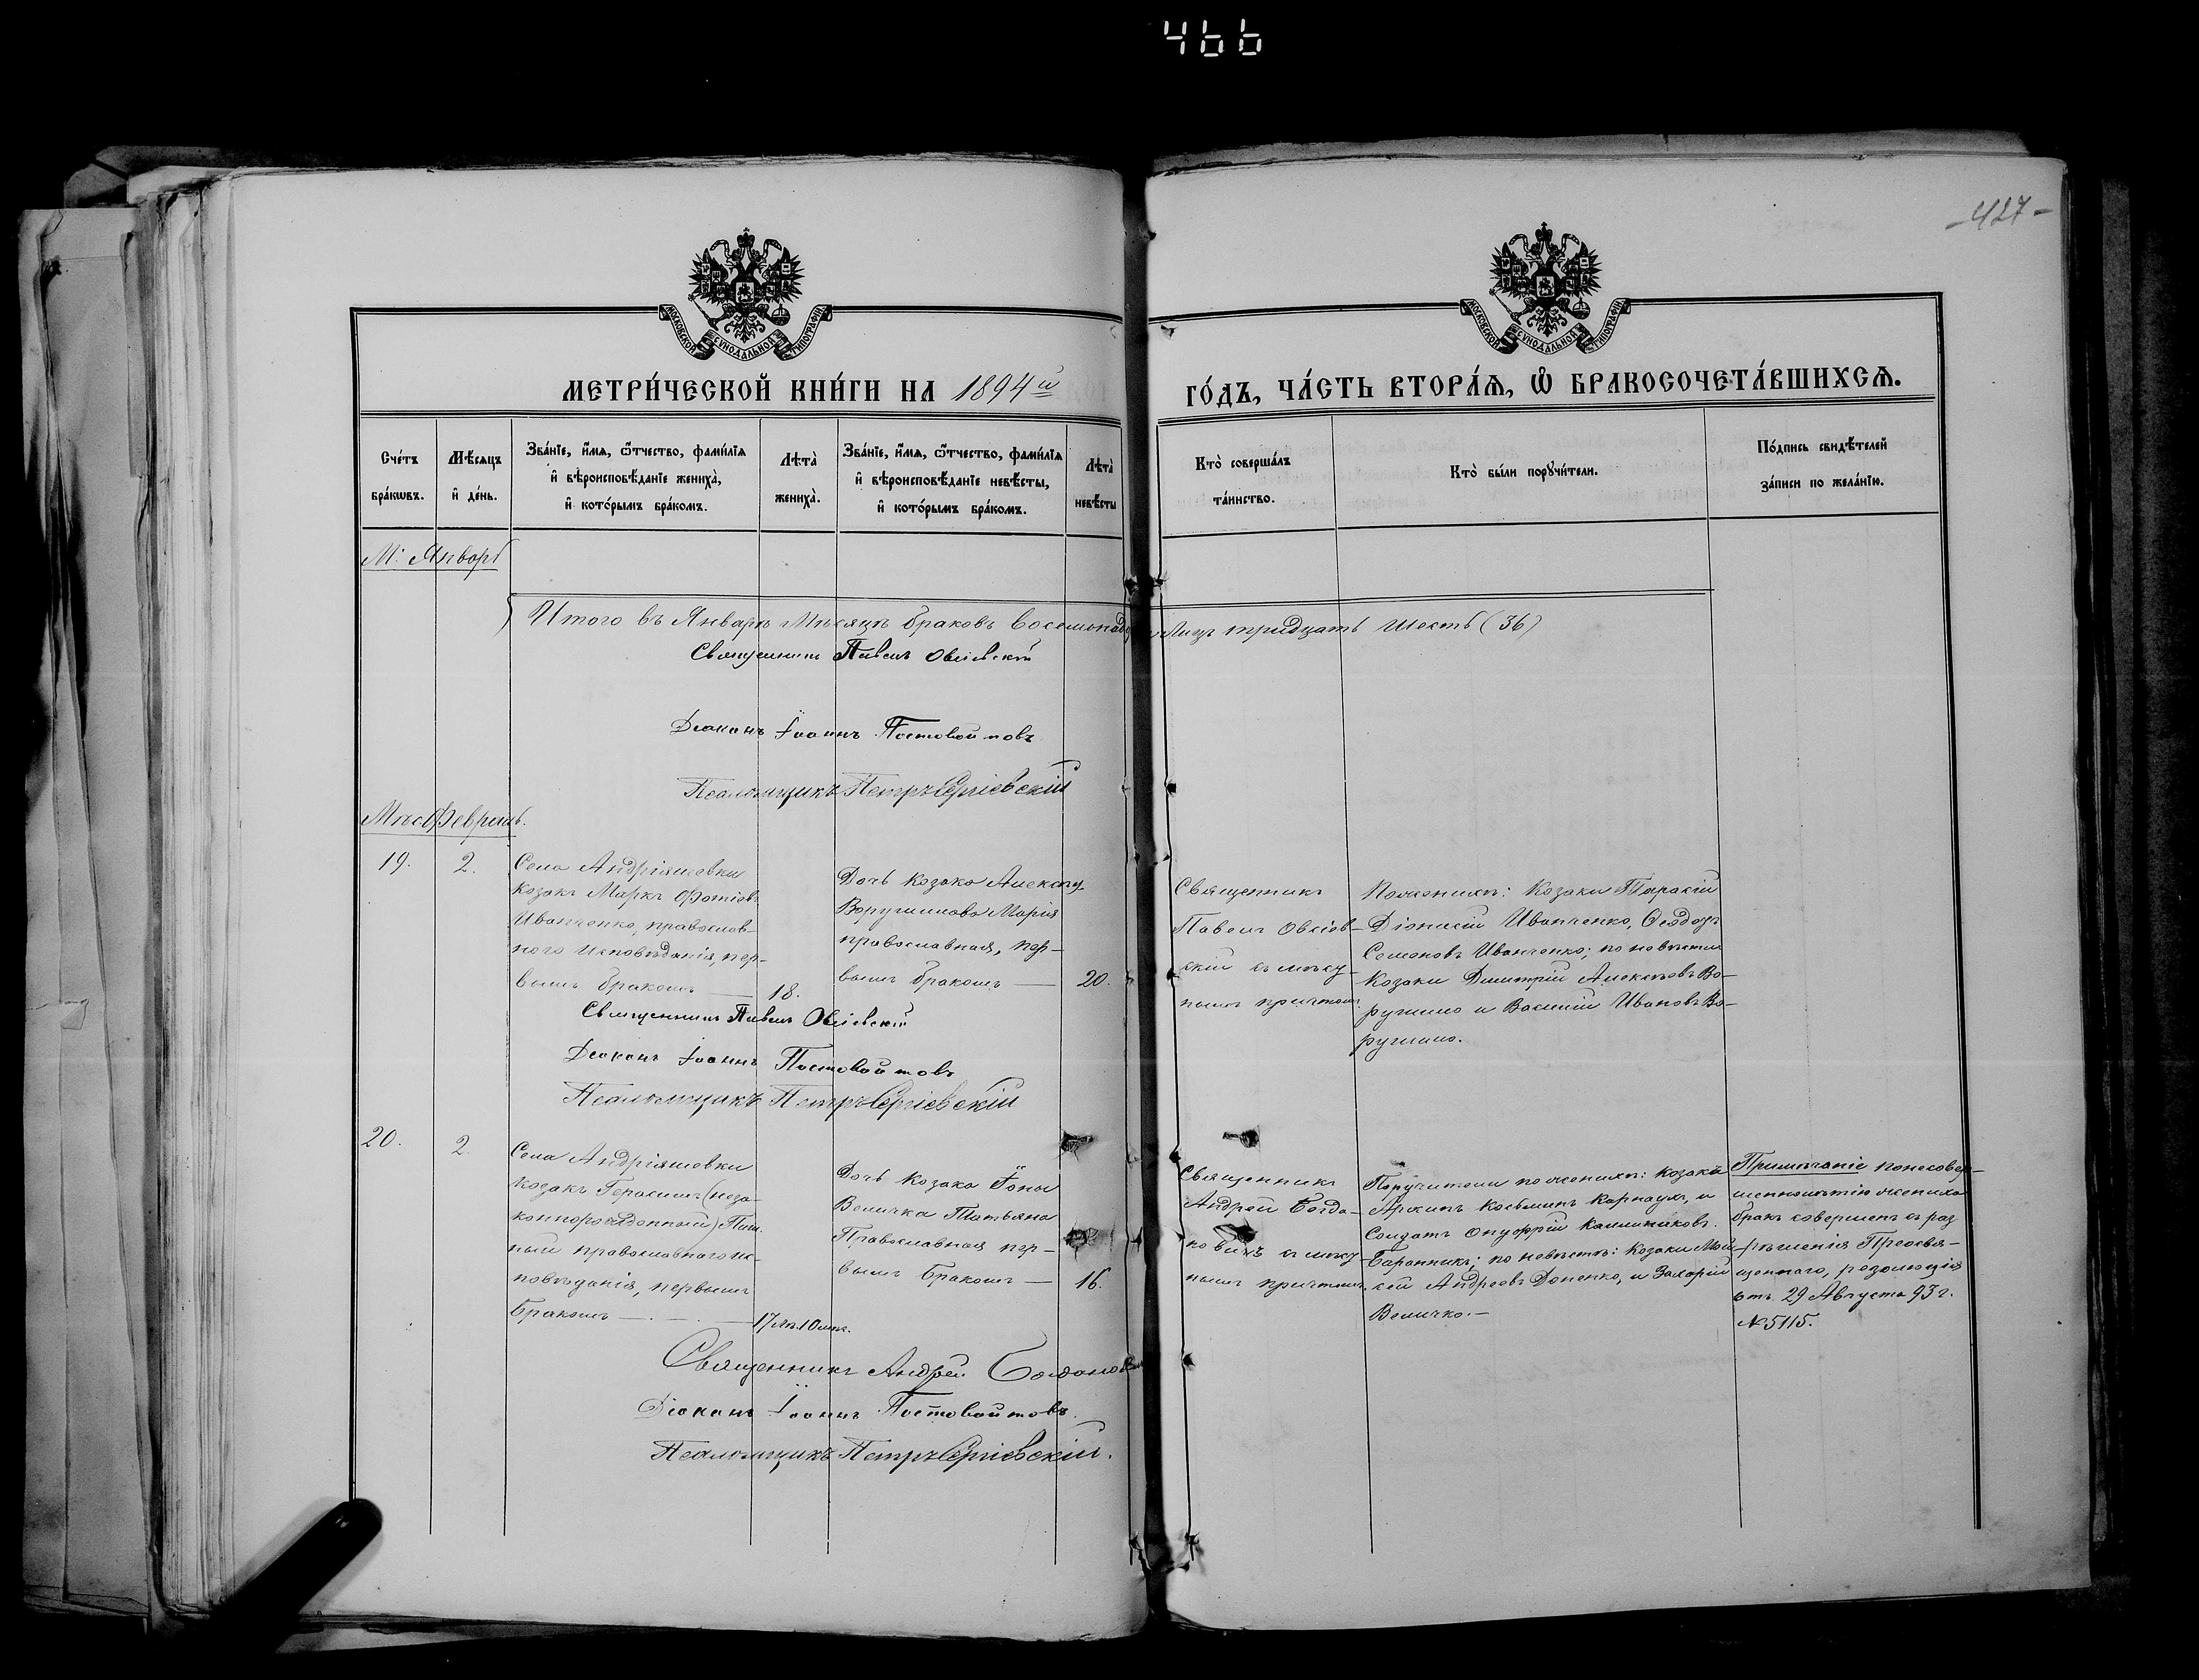 466
-427-
МОСКОВСКОЙ СѴНОДАЛЬНОЙ ТИПОГРАФІИ
МОСКОВСКОЙ СѴНОДАЛЬНОЙ ТИПОГРАФІИ
МЕТРИ́ЧЕСКОЙ КНИ́ГИ НА 1894й
ГО́ДЪ, ЧА́СТЬ ВТОРА́Ѧ, Ѿ БРАКОСОЧЕТА́ВШИХСѦ.
Сче́тъ бра́кѡвъ.
Мѣ́сѧцъ и҆ де́нь.
Зва́нїе, и҆́мѧ, ѻ҆́тчество, фами́лїѧ
и҆ вѣроисповѣ́данїе жениха̀,
и҆ кото́рымъ бра́комъ.
Лѣта̀ жениха̀.
Зва́нїе, и҆́мѧ, ѻ҆́тчество, фами́лїѧ
и҆ вѣроисповѣ́данїе невѣ́сты,
и҆ кото́рымъ бра́комъ.
Лѣта̀ невѣ́сты
Кто̀ соверша́лъ
та́инство.
Кто̀ бы́ли порꙋчи́тели.
По́дпись свидѣ́телей
за́писи по жела́нїю.
М: Январь
Итого въ Январѣ Мѣсяцѣ браковъ восемьнадц Лицъ тридцать шесть (36)
Священникъ Павелъ Овсіевскій
Діаконъ Іоаннъ Постовойтовъ
Псаломщикъ Петръ Сергіевскій
Мѣс. Февраль.
19.
2.
Села Андріяшевки
козакъ Маркъ Фотіевъ
Иванченко, православ-
наго исповѣданія, пер-
вымъ бракомъ —
18.
Дочь козака Алексѣя
Воружилова Марія
православная, пер-
вымъ бракомъ —
20.
Священникъ
Павелъ Овсіев-
скій съ мѣсу-
нымъ причтомъ.
По женихѣ: Козаки Тарасій
Діонисій Иванченко, Ѳеодоръ
Семеновъ Иванченко; по невѣстѣ
Козаки Димитрій Алексѣевъ Во-
ружило и Василій Ивановъ Во-
ружило.
Священникъ Павелъ Овсіевскій
Діаконъ Іоаннъ Постовойтовъ
Псаломщикъ Петръ Сергіевскій
20.
2.
Села Андріяшевки
козакъ Герасимъ (неза-
коннорожденный)
православнаго ис-
повѣданія, первымъ
бракомъ — . — . —
17 лѣ. 10 мѣс.
Дочь козака Іоны
Величка Татьяна
Православная пер-
вымъ бракомъ —
16.
Священникъ
Андрей Богда-
новичъ съ мѣсу-
нымъ причтомъ.
Поручители по женихѣ: козаки
Козьминъ Карнаухъ, и
Солдатъ Онуфрій Каллиниковъ
Баранникъ; по невѣстѣ: Козаки Мой-
сей Андреевъ Доценко, и Захарій
Величко. —
Примѣчаніе по несовер-
шеннолѣтію жениха
бракъ совершенъ съ раз
рѣшенія Преосвя-
щеннаго, резолюція
отъ 29 Августа 93 г.
№ 5115.
Священникъ Андрей Богданович
Діаконъ Іоаннъ Постовойтовъ.
Псаломщикъ Петръ Сергіевскій.